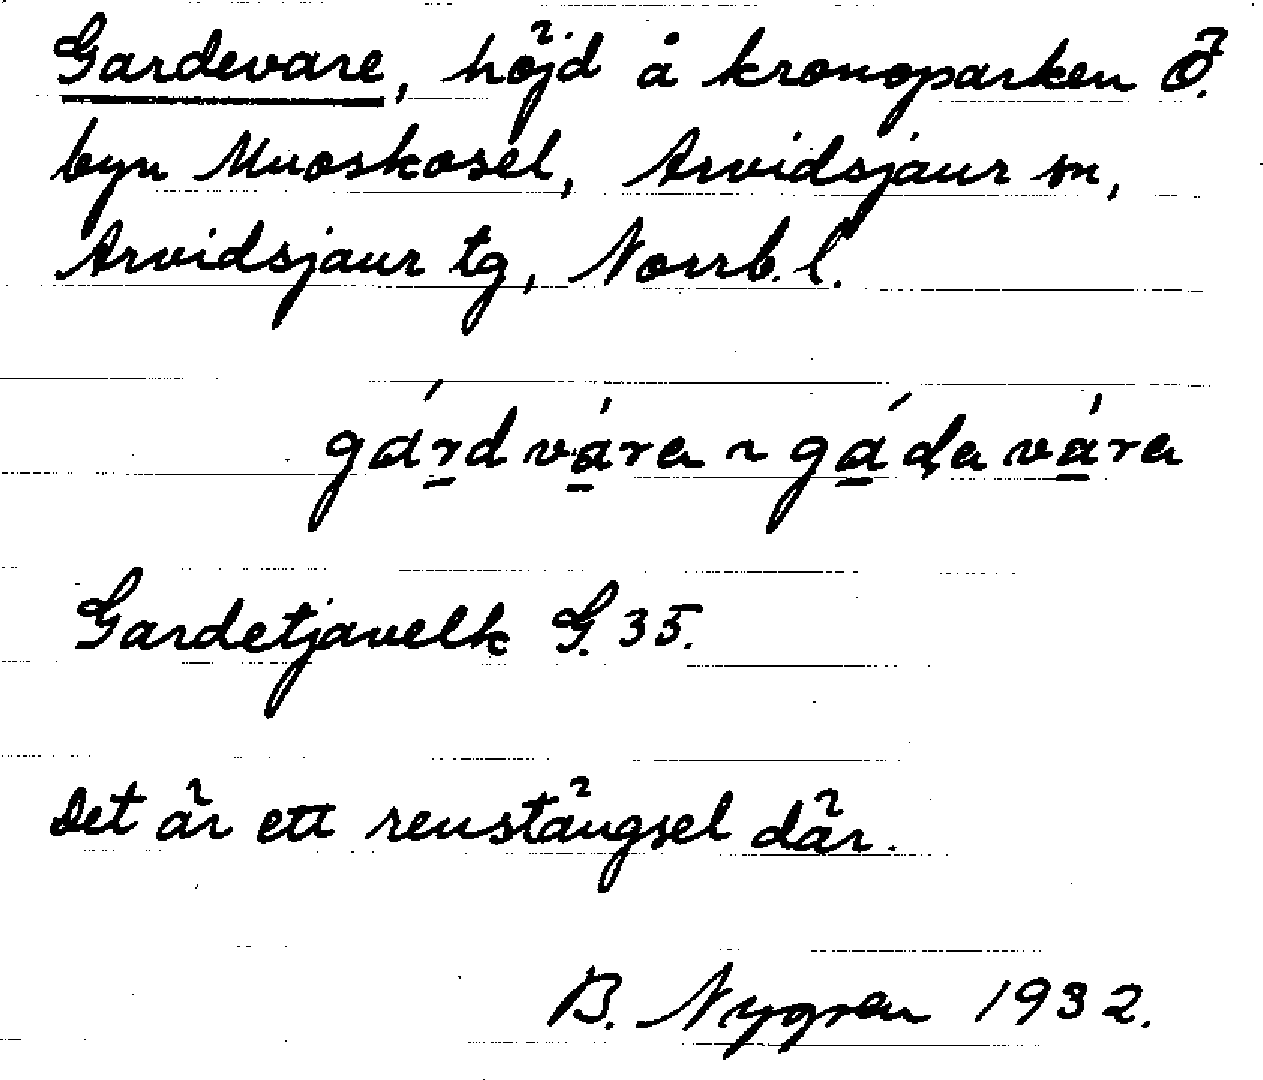 Gardevare, höjd å kronoparken Ö.
byn Muoskosel, Arvidsjaur sn,
Arvidsjaur tg, Norrb. l.
gárdvára ~ gádavára
Gardetjavelk G. 35.
Det är ett renstängsel där.
B. Nygren 1932.